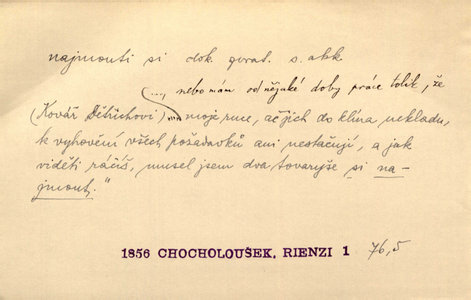 najmouti si dok. gerat. s. akk
„..., nebo mám od nějaké doby práce tolik, že
(Kovář Dětřichovi) moje ruce, ač jich do klína nekladu,
k vyhovění všech požadavků ani nestačují, a jak
viděti ráčíš, musel jsem dva tovaryše si na-
jmout."
1856 CHOCHOLOUŠEK, RIENZI 1 76,5